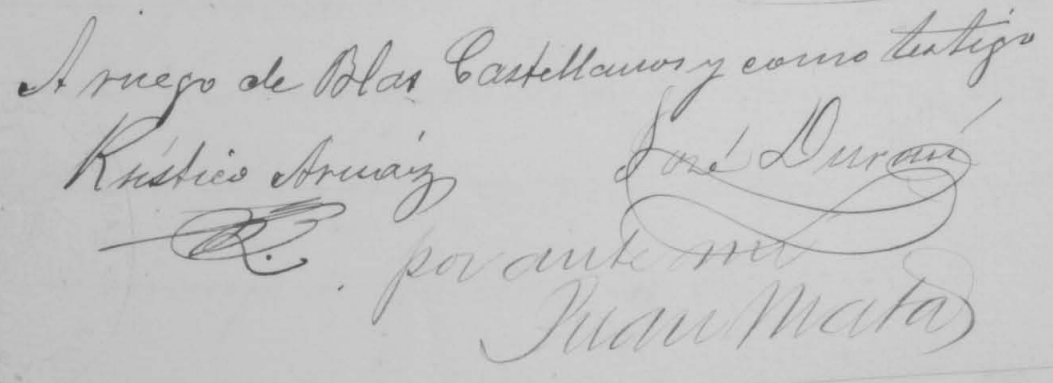 A ruego de Blas Castellanos y como testigo
Rústico Arnáiz José Durán
por ante mi
Juan Mata